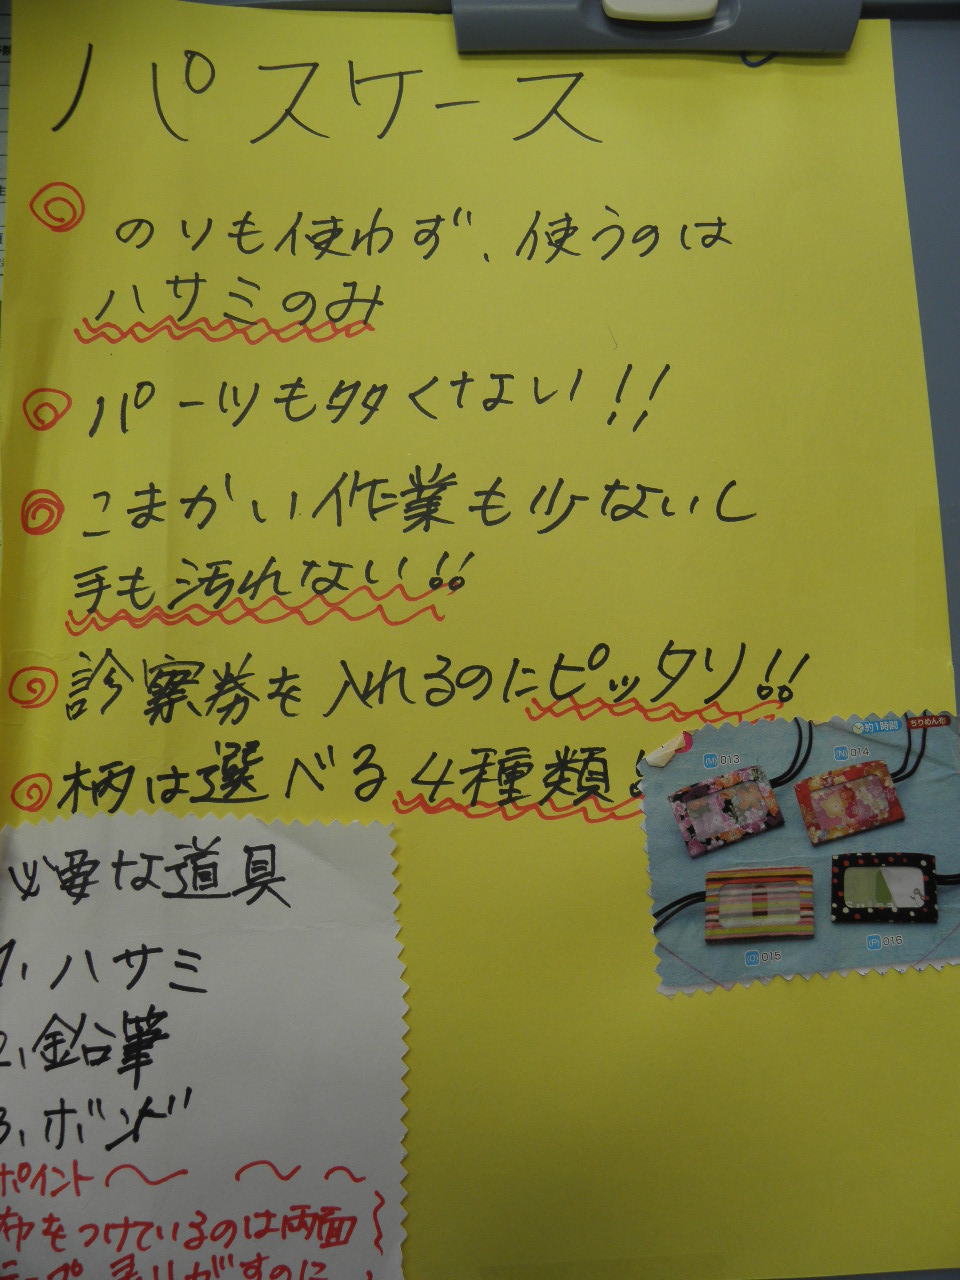 パスケース
◎ のりも使わず、使うのは
ハサミのみ
◎ パーツも多くない!!
◎ こまかい作業も少ないし
手も汚れない!!
◎ 診察券を入れるのにピッタリ!!
◎ 柄は選べる4種類
約1時間
ちりめん布
(M) 013
(N) 014
(O) 015
(P) 016
必要な道具
1. ハサミ
2. 鉛筆
3. ボンド
ポイント
布をつけているのは両面